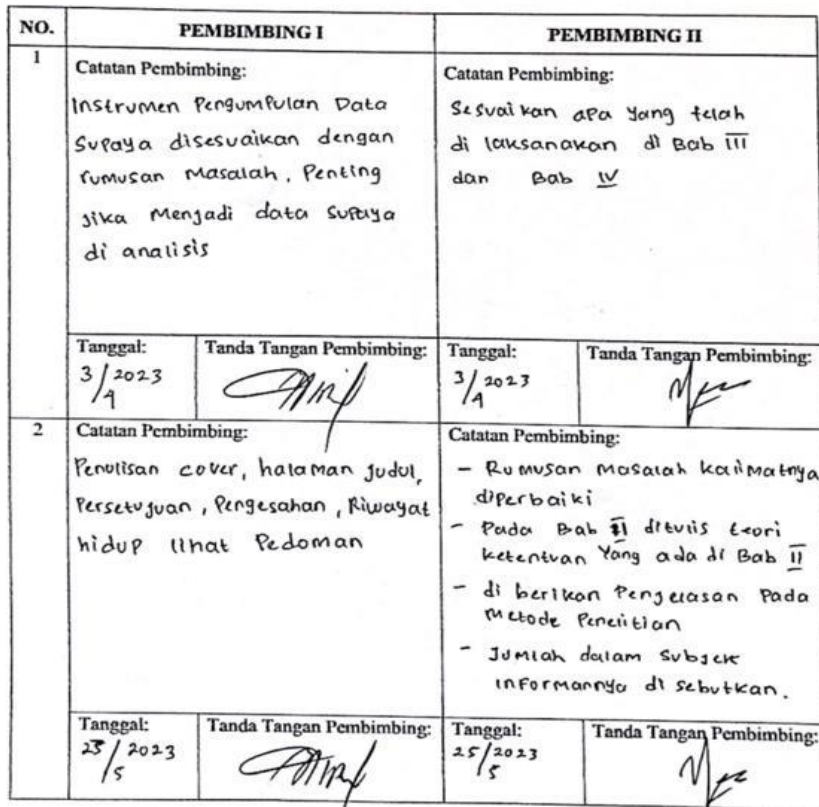 NO.
PEMBIMBING I
PEMBIMBING II
1
Catatan Pembimbing:
Instrumen Pengumpulan Data
Supaya disesuaikan dengan
rumusan Masalah, Penting
jika Menjadi data Supaya
di analisis
Catatan Pembimbing:
Sesuaikan apa yang telah
di laksanakan di Bab III
dan Bab IV
Tanggal:
3/4 2023
Tanda Tangan Pembimbing:
Tanggal:
3/4 2023
Tanda Tangan Pembimbing:
2
Catatan Pembimbing:
Penulisan cover, halaman judul,
Persetujuan, Pengesahan, Riwayat
hidup lihat Pedoman
Catatan Pembimbing:
- Rumusan Masalah kalimatnya
diperbaiki
- Pada Bab II ditulis teori
ketentuan Yang ada di Bab II
- di berikan Penjelasan Pada
Metode Penelitian
- Jumlah dalam Subjek
informannya di sebutkan.
Tanggal:
/5 2023
Tanda Tangan Pembimbing:
Tanggal:
25/5 2023
Tanda Tangan Pembimbing: